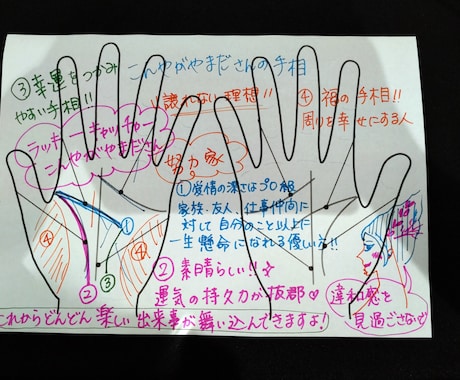 こんやがやまださんの手相
③幸運をつかみ
やすい手相!!
"譲れない理想"!!
④福の手相!!
周りを幸せにする人
ラッキーキャッチャー
こんやがやまださん
努力家
①感情の深さはプロ級
家族・友人、仕事仲間に
対して自分のこと以上に
一生懸命になれる優しい方!!
④
④
①
②
③
②素晴らしい!!☆
運気の持久力が抜群♡
違和感を
見過ごさないで
これからどんどん楽しい出来事が舞い込んできますよ!